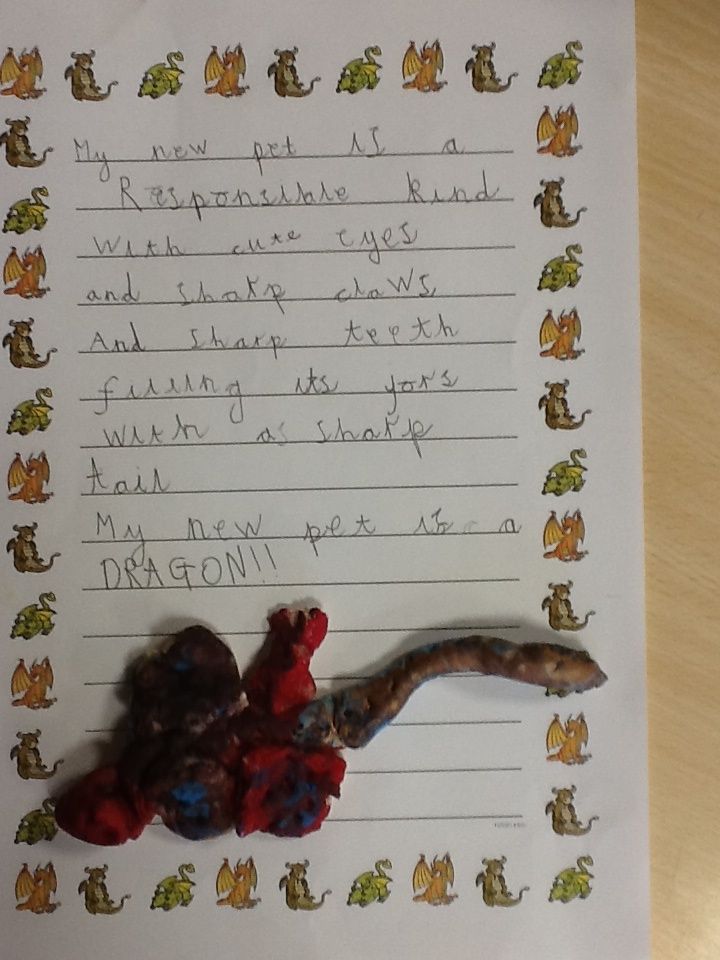 My new pet is a
Responsible kind
With cute eyes
and sharp claws
And sharp teeth
filling its jors
with as sharp
tail
My new pet is a
DRAGON!!